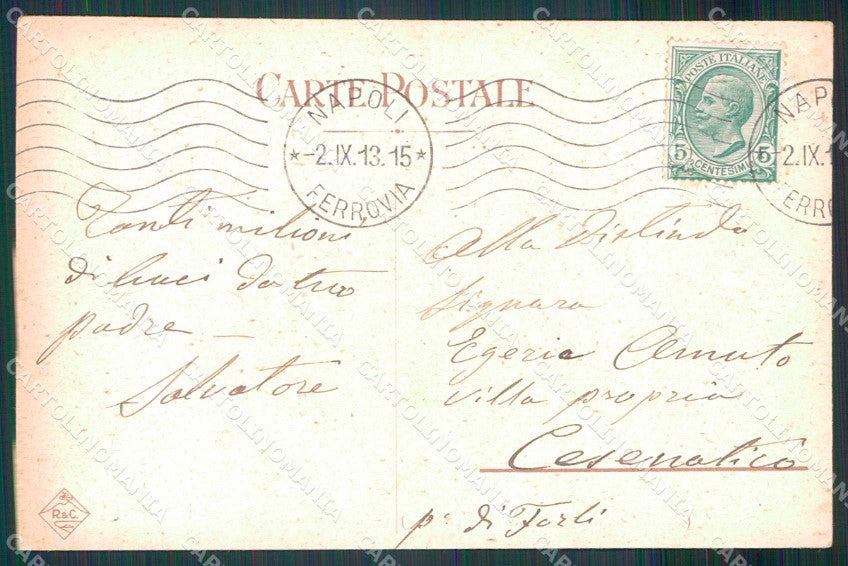 CARTE POSTALE
NAPOLI
★ -2.IX.13.15 ★
FERROVIA
POSTE ITALIANE
5 CENTESIMI 5
NAP
-2.IX.1
ERRO
Tanti milioni
di baci da tuo
padre —
Salvatore
Alla Distinta
Signora
Egeria
villa propria
Cesenatico
pa di Forlì
R&C.
CARTOLINOMANIA